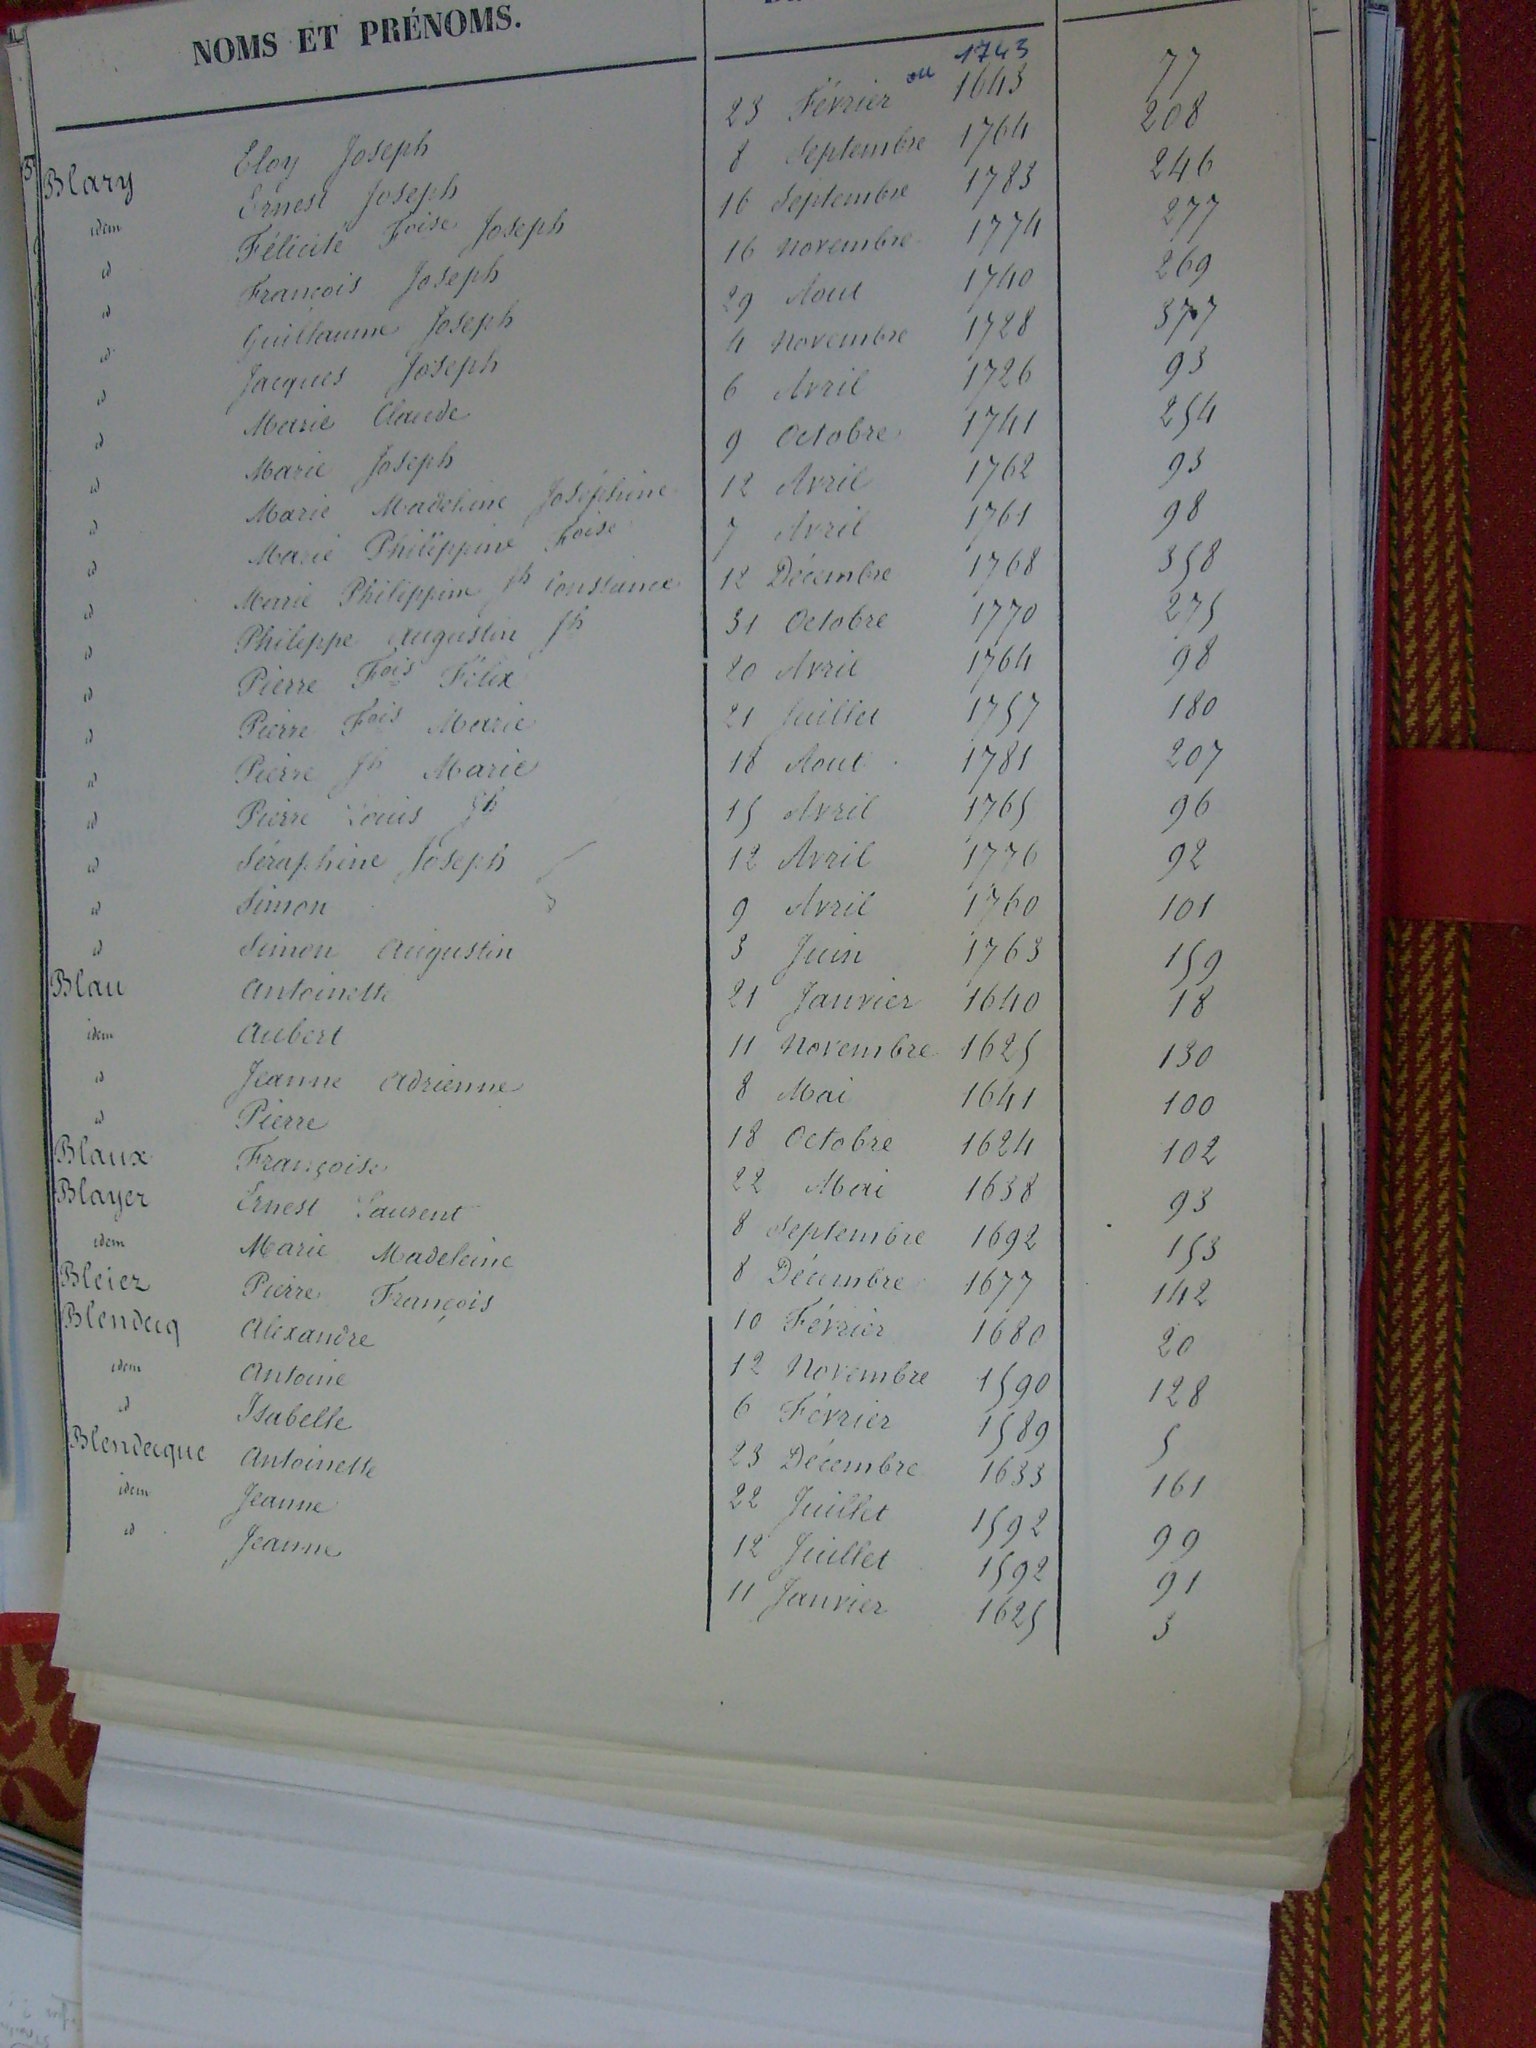 NOMS ET PRÉNOMS.
ou 1743
Blary Eloy Joseph 23 Février 1643 77
idem Ernest Joseph 8 Septembre 1764 208
id Félicité Foise Joseph 16 Septembre 1783 246
id François Joseph 16 Novembre 1774 277
id Guillaume Joseph 29 Aout 1740 269
id Jacques Joseph 4 Novembre 1728 377
id Marie Claude 6 Avril 1726 93
id Marie Joseph 9 Octobre 1741 254
id Marie Madeleine Joséphine 12 Avril 1762 93
id Marie Philippine Foise 7 Avril 1761 98
id Marie Philippine Jh Constance 12 Décembre 1768 358
id Philippe Augustin Jh 31 Octobre 1770 275
id Pierre Fois Félix 20 Avril 1764 98
id Pierre Fois Marie 21 Juillet 1757 180
id Pierre Jh Marie 18 Aout 1781 207
id Pierre Louis Jh 15 Avril 1765 96
id Séraphine Joseph 12 Avril 1776 92
id Simon 9 Avril 1760 101
id Simon Augustin 3 Juin 1763 159
Blau Antoinette 21 Janvier 1640 18
idem Aubert 11 Novembre 1625 130
id Jeanne Adrienne 8 Mai 1641 100
id Pierre 18 Octobre 1624 102
Blaux Françoise 22 Mai 1638 93
Blayer Ernest Laurent 8 Septembre 1692 153
idem Marie Madeleine 8 Décembre 1677 142
Bleiez Pierre François 10 Février 1680 20
Blendecq Alexandre 12 Novembre 1590 128
idem Antoine 6 Février 1589 5
id Isabelle 23 Décembre 1633 161
Blendecque Antoinette 22 Juillet 1592 99
idem Jeanne 12 Juillet 1592 91
id Jeanne 11 Janvier 1625 3